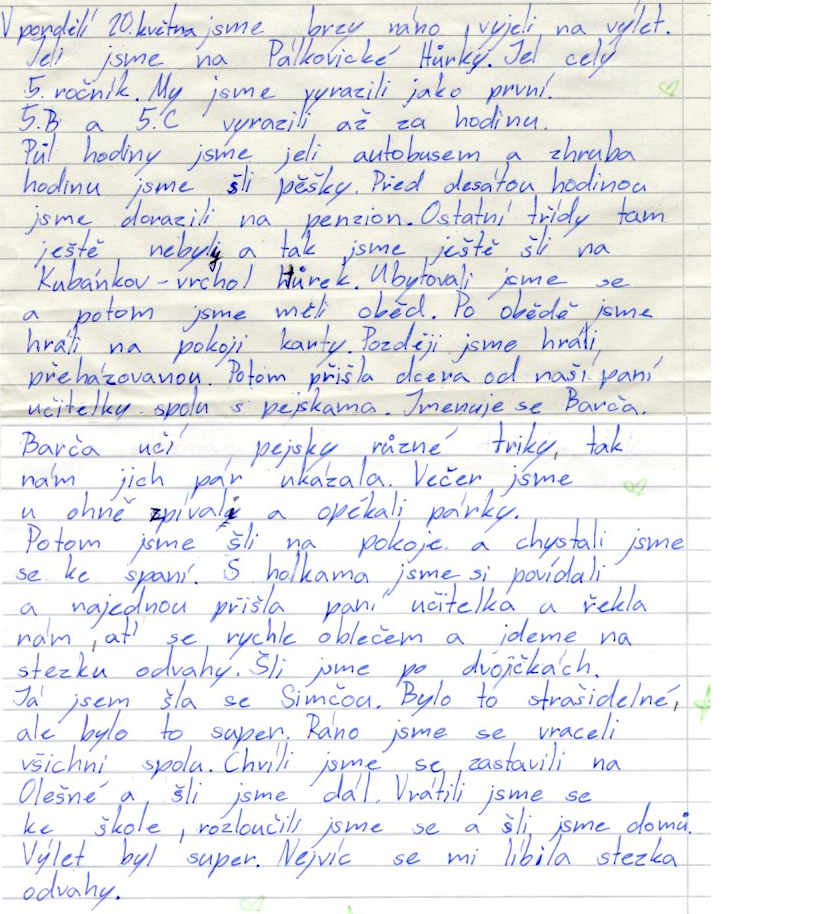 V pondělí 20. května jsme brzy ráno vyjeli na výlet.
Jeli jsme na Palkovické Hůrky. Jel celý
5. ročník. My jsme vyrazili jako první.
5.B a 5.C vyrazili až za hodinu.
Půl hodiny jsme jeli autobusem a zhruba
hodinu jsme šli pěšky. Před desátou hodinou
jsme dorazili na penzion. Ostatní třídy tam
ještě nebyly a tak jsme ještě šli na
Kubánkov - vrchol Hůrek. Ubytovali jsme se
a potom jsme měli oběd. Po obědě jsme
hráli na pokoji karty. Později jsme hráli
přeházovanou. Potom přišla dcera od naší paní
učitelky spolu s pejskama. Jmenuje se Barča.
Barča učí pejsky různé triky, tak
nám jich pár ukázala. Večer jsme
u ohně zpívali a opékali párky.
Potom jsme šli na pokoje a chystali jsme
se ke spaní. S holkama jsme si povídali
a najednou přišla paní učitelka a řekla
nám, ať se rychle oblečem a jdeme na
stezku odvahy. Šli jsme po dvojičkách.
Já jsem šla se Simčou. Bylo to strašidelné,
ale bylo to super. Ráno jsme se vraceli
všichni spolu. Chvíli jsme se zastavili na
Olešné a šli jsme dál. Vrátili jsme se
ke škole, rozloučili jsme se a šli jsme domů.
Výlet byl super. Nejvíc se mi líbila stezka
odvahy.